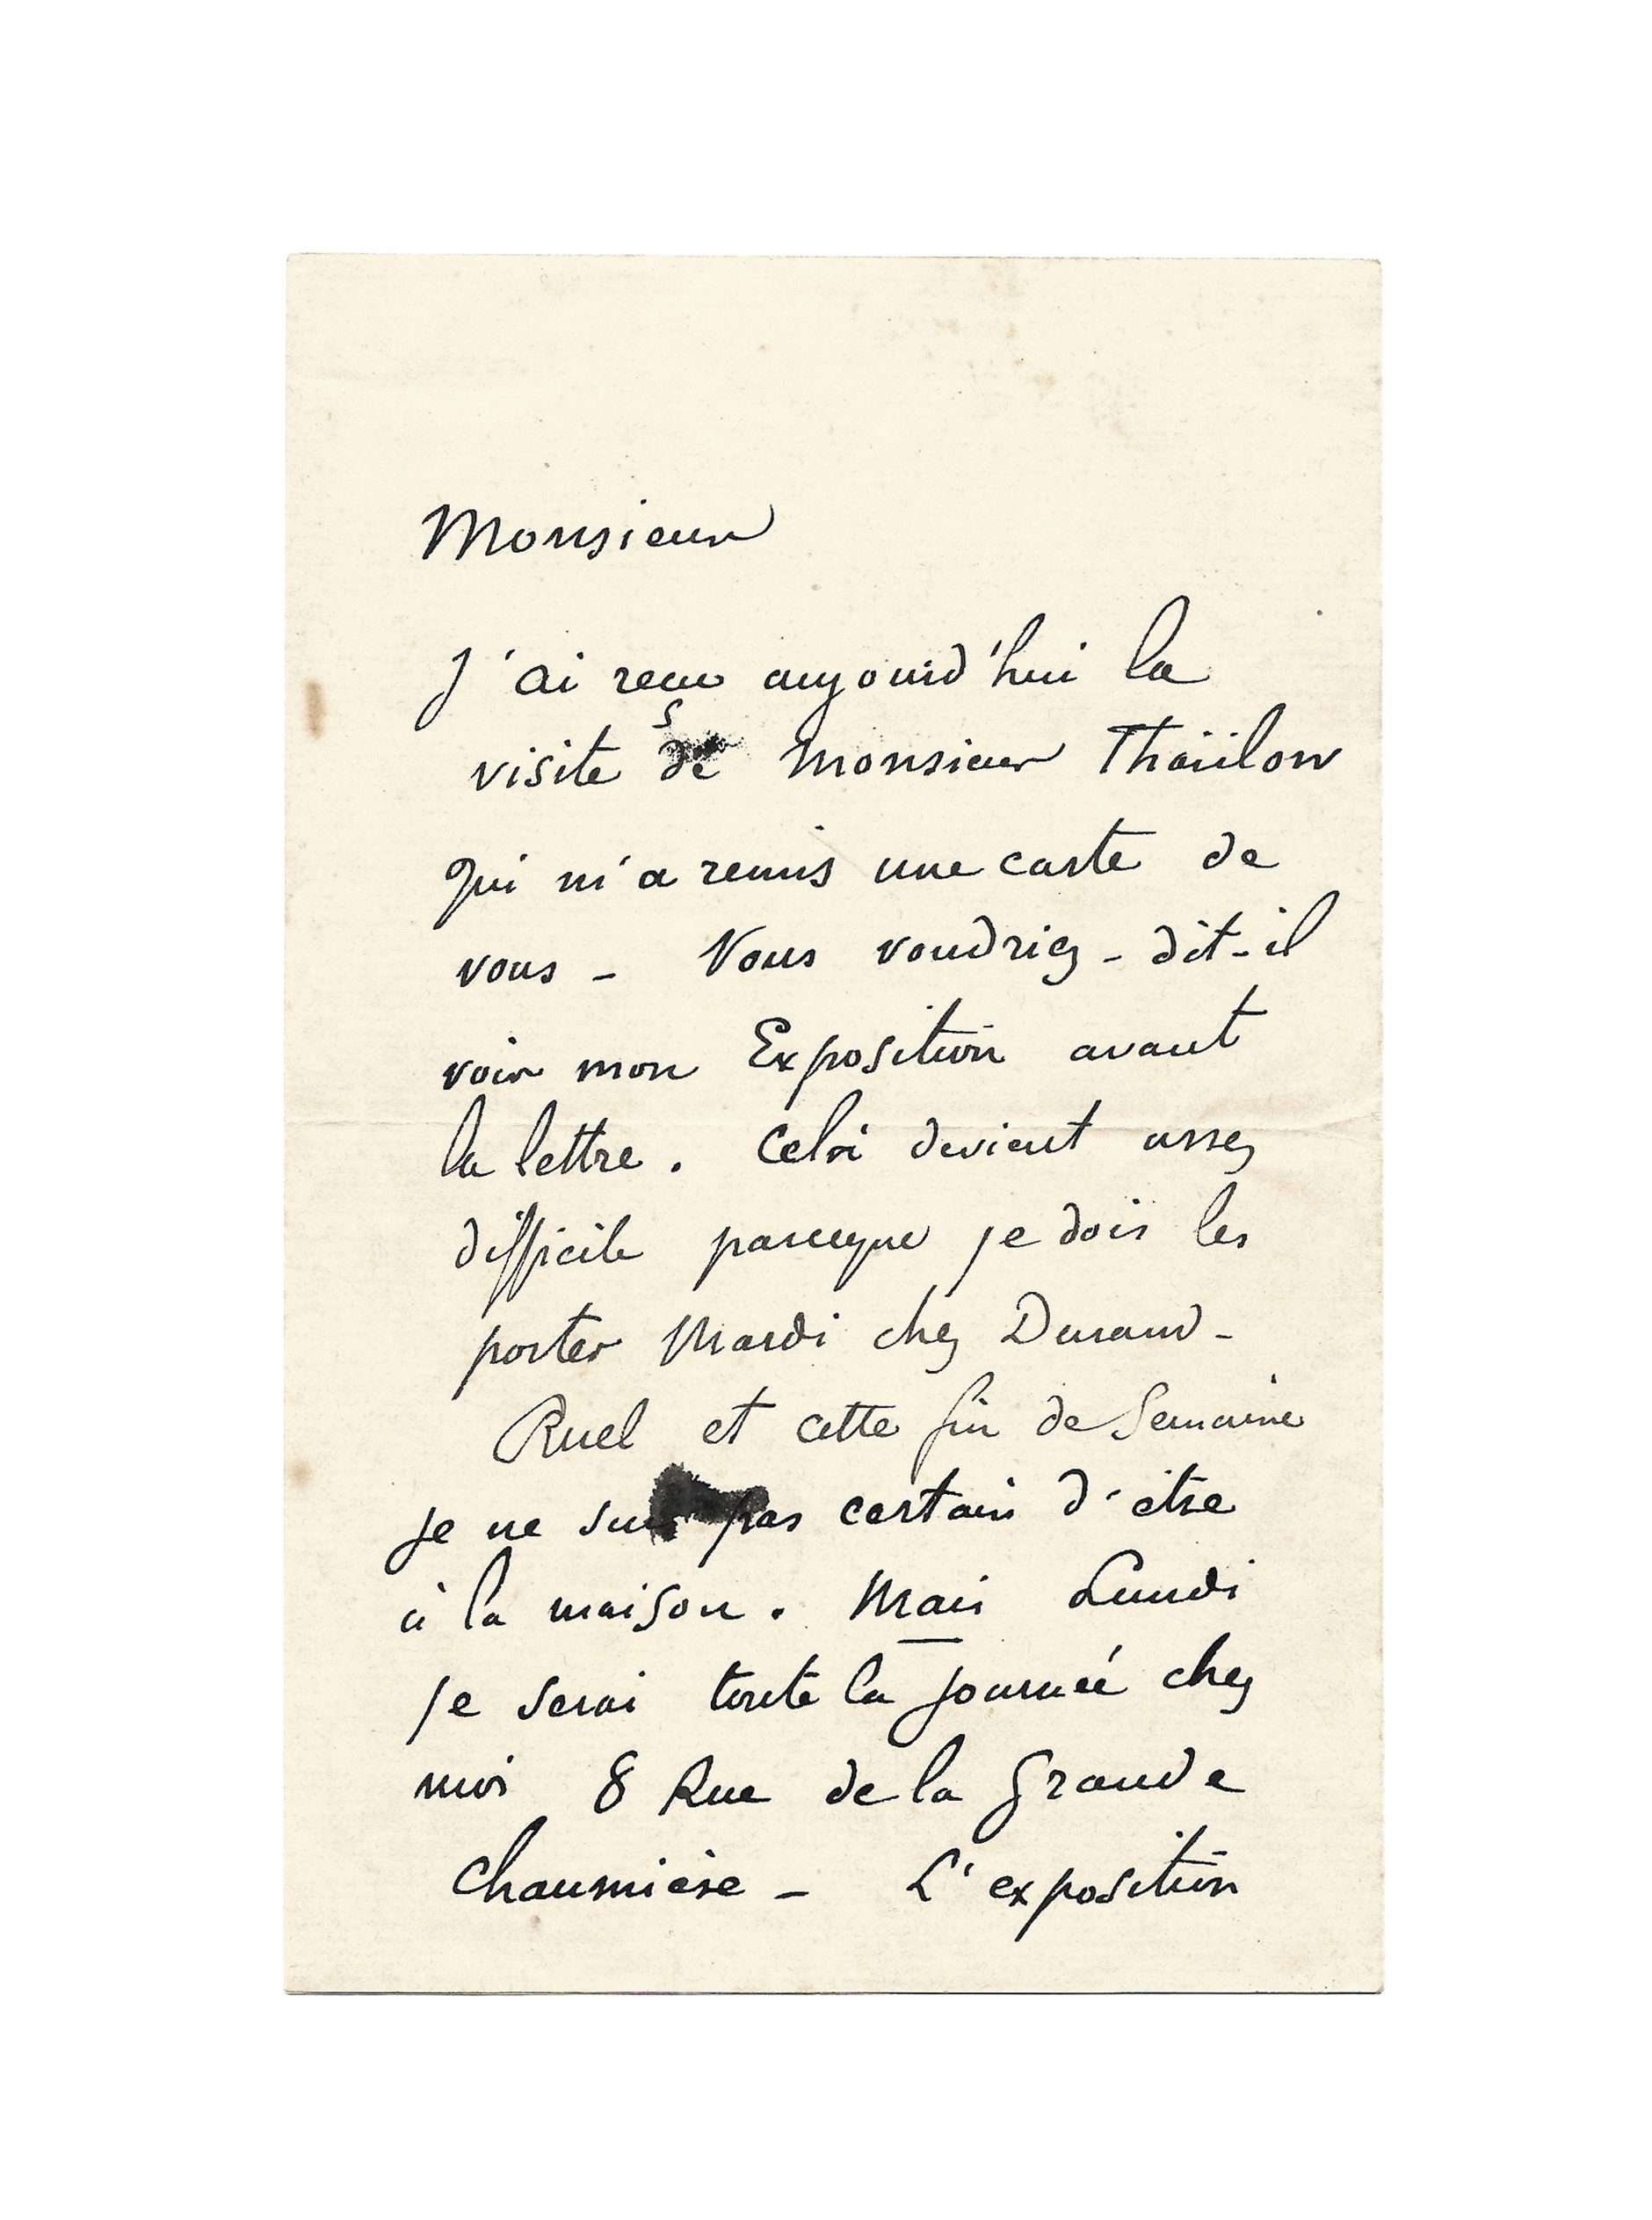 Monsieur
J'ai reçu aujourd'hui la
visite de Monsieur Thaülow
qui m'a remis une carte de
vous - Vous voudriez - dit-il
voir mon Exposition avant
la lettre. Celà devient assez
difficile parceque je dois les
porter Mardi chez Durand-
Ruel et cette fin de Semaine
je ne suis pas certain d'être
à la maison. Mais Lundi
je serai toute la journée chez
moi 8 Rue de la Grande
Chaumière - L'exposition